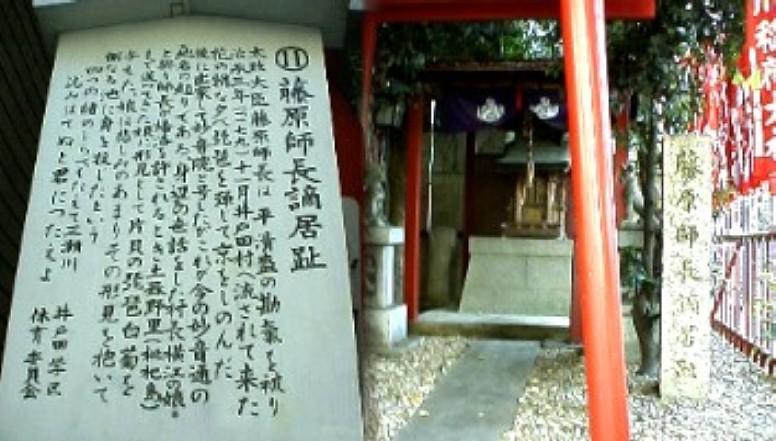 ⑪ 藤原師長謫居趾
太政大臣藤原師長は 平清盛の勘気を被り
治承三年(一一七九)十一月井戸田村へ流されて来た
後に出家して妙音院と号したがこれが今の妙音通の
町名の起りである 身辺の世話をした村長横江の娘
と契り師長が帰洛を許されるとき土器野里(枇杷島)
まで送ってきた娘に形見として片貝の琵琶白菊を
与えた 娘は悲しみのあまりその形見を抱いて
側なる池に身を投じたという
四つの緒のしらべもたえて三瀬川
沈みはてぬと君につたえよ
井戸田学区
保育委員会
藤原師長謫居趾